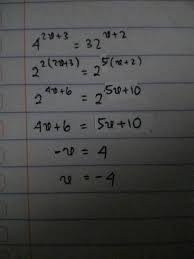 4^{2v+3} = 32^{v+2}
2^{2(2v+3)} = 2^{5(v+2)}
2^{4v+6} = 2^{5v+10}
4v+6 = 5v+10
-v = 4
v = -4